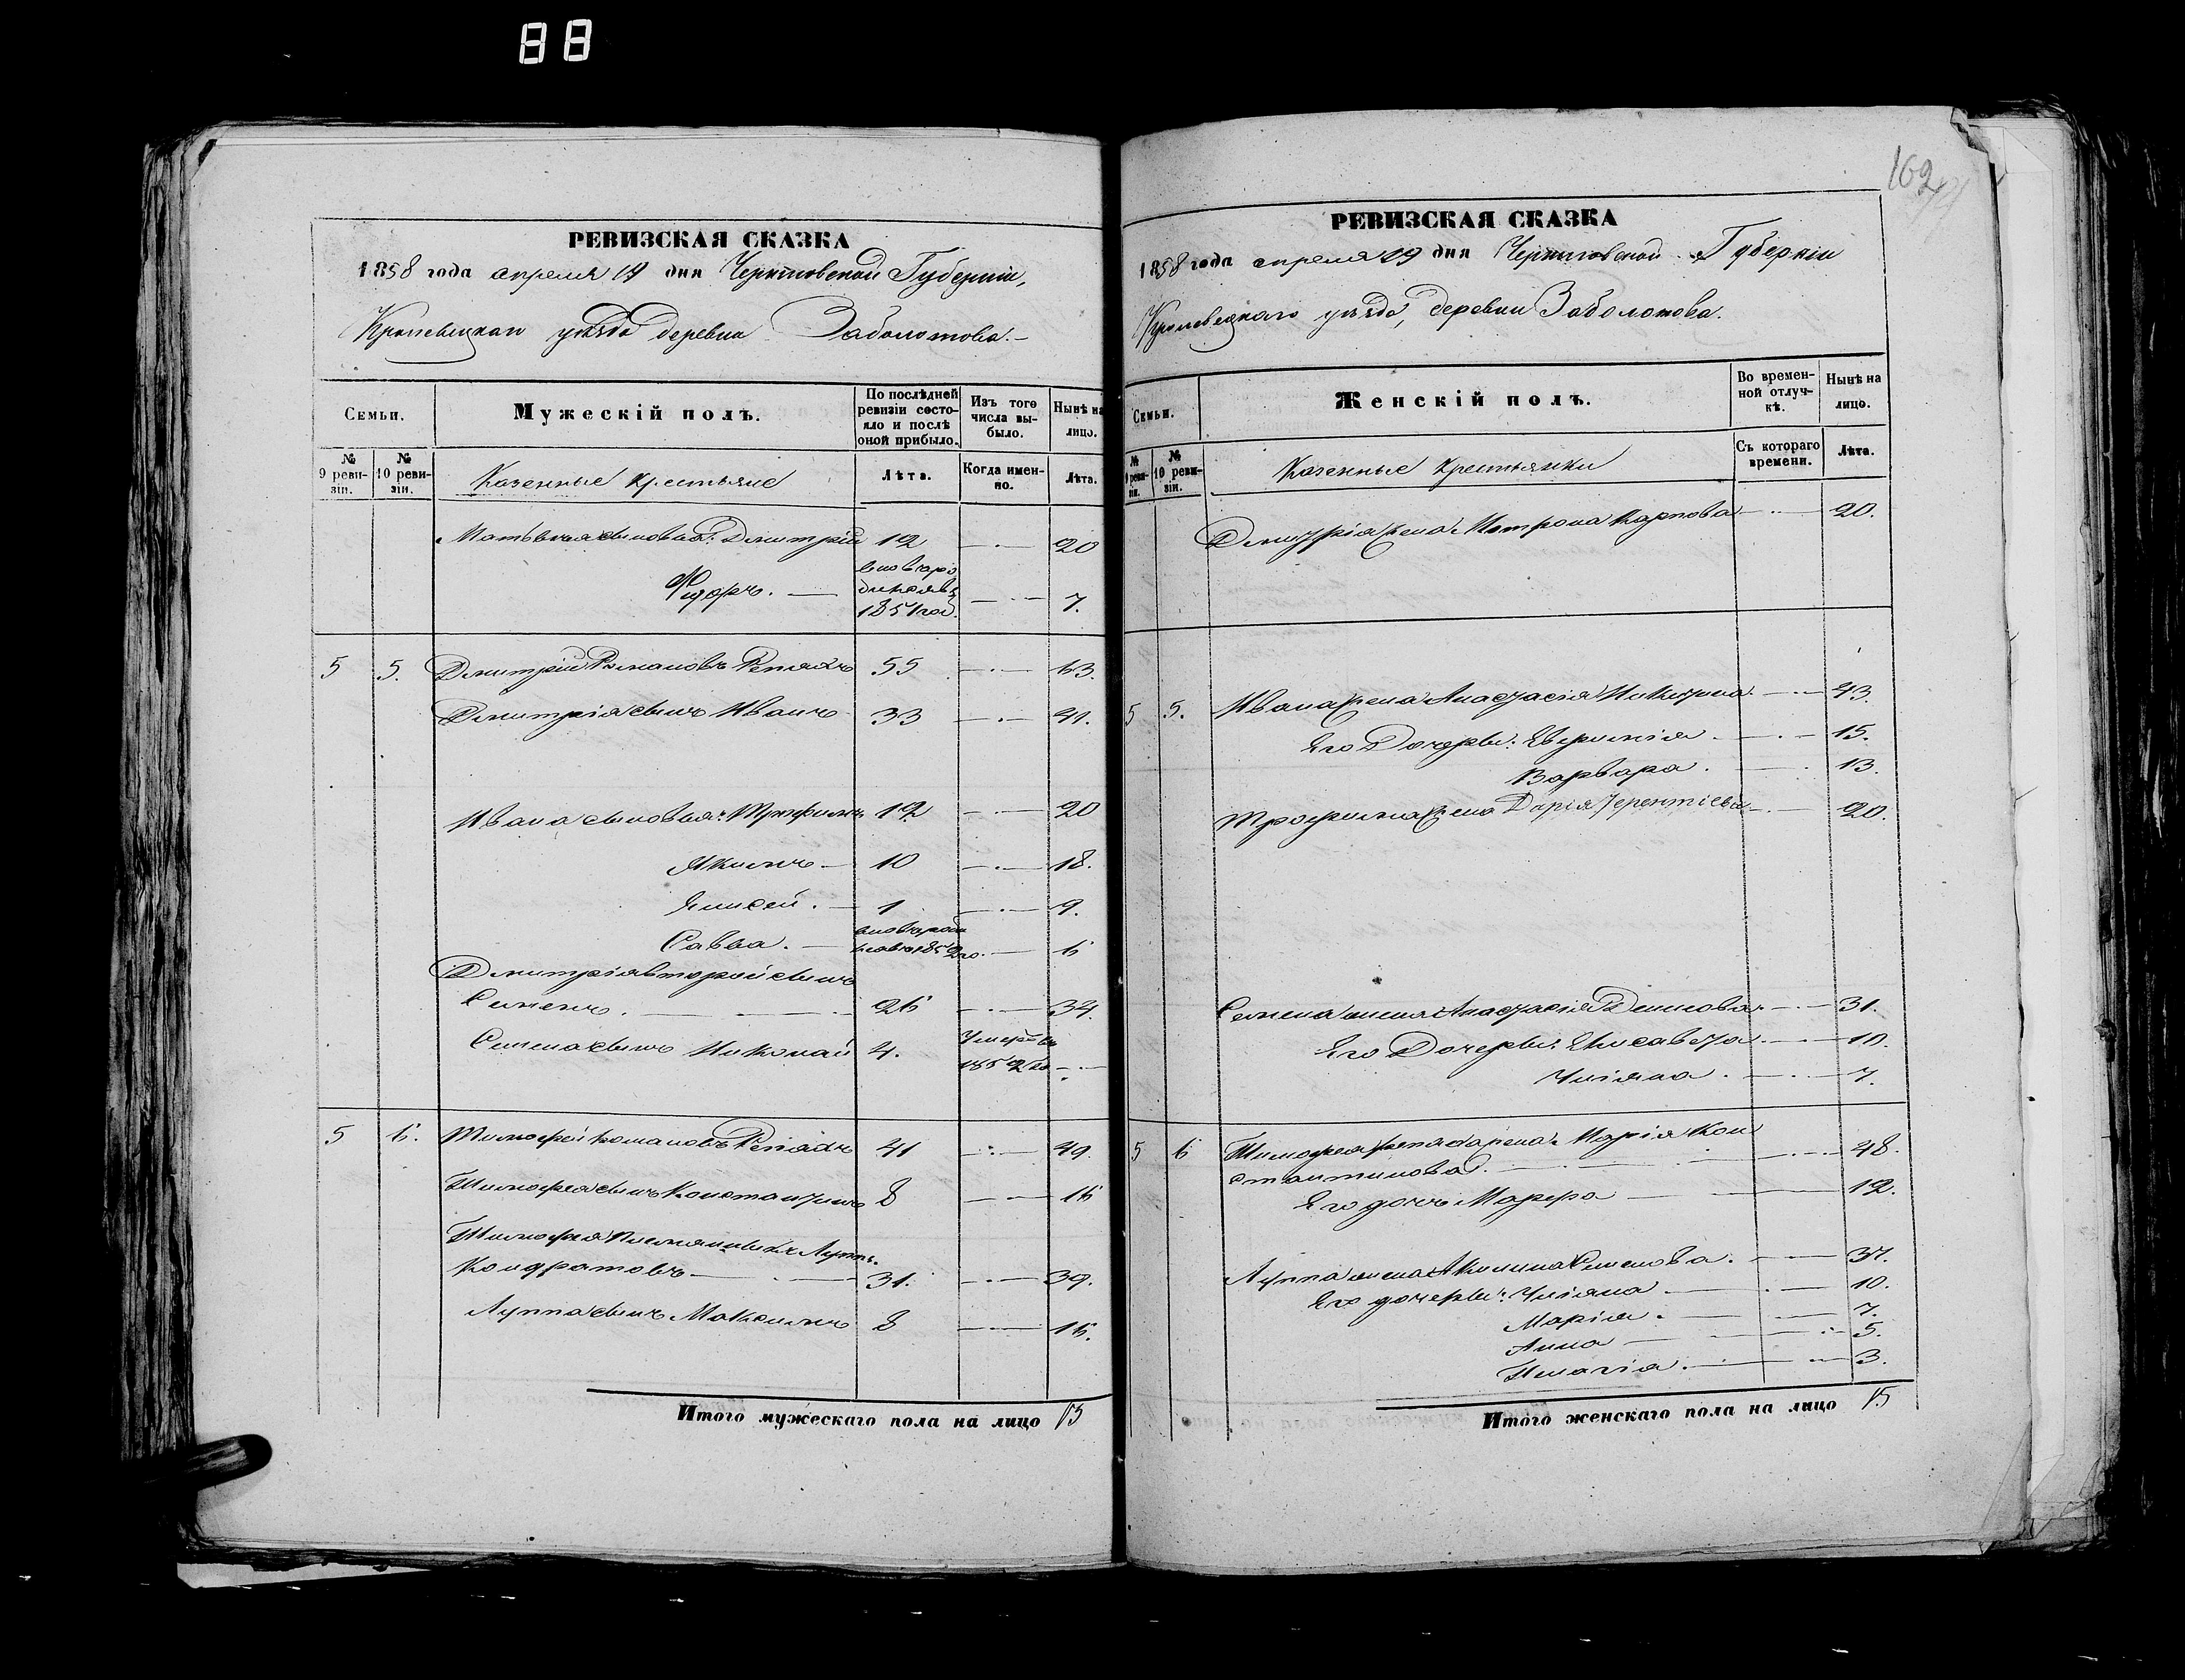 88
РЕВИЗСКАЯ СКАЗКА
1858 года апреля 19 дня Черниговской Губернии,
Кролевецкаго уѣзда деревни Заболотова.
Семьи.
Мужескій полъ.
По послѣдней ревизіи состояло и послѣ оной прибыло.
Изъ того числа выбыло.
Нынѣ на лицо.
№ 9 ревизіи.
№ 10 ревизіи.
Казенные крестьяне
Лѣта.
Когда именно.
Лѣта.
Матвѣя сыновья: Дмитрій 12 — 20
Федоръ. — 1851 год. — 7.
5 5. Дмитрій Романовъ Репяхъ 55 — 63.
Дмитрія сынъ Иванъ 33 — 41.
Ивана сыновья: Трофимъ 12 — 20
Якимъ — 10 — 18.
Елисей. — 1 — 9.
Савва. — 1852 го. — 6
Дмитрія второй сынъ
Семенъ. — 26 — 34.
Семена сынъ Николай 4. Умеръ въ 1852 го —
5 6. Тимофей Романовъ Репяхъ 41 — 49.
Тимофея сынъ Константинъ 8 — 16
Тимофея племянникъ Луппъ
Кондратовъ — 31. — 39.
Луппа сынъ Максимъ 8 — 16.
Итого мужескаго пола на лицо 13
162
РЕВИЗСКАЯ СКАЗКА
1858 года апреля 19 дня Черниговской Губерніи
Кролевецкаго уѣзда, деревни Заболотова.
Семьи.
Женскій полъ.
Во временной отлучкѣ.
Нынѣ на лицо.
№ 9 ревизіи.
№ 10 ревизіи.
Казенные крестьянки
Съ котораго времени.
Лѣта.
Дмитрія жена Матрона Карпова — 20.
5 5. Ивана жена Анастасія Никитина — 43.
Его Дочери: Евфимія — 15.
Варвара. — 13.
Трофима жена Дарія Терентіева — 20.
Семена жена Анастасія Денисова — 31.
Его Дочери: Елисавета — 10.
Уліяна. — 7.
5 6 Тимофея Репяха жена Марія Кон
стантинова. — 48.
Его дочь Марфа — 12.
Луппа жена Акилина Семенова. — 37.
Его дочери: Уліяна — 10.
Марія. — 7.
Анна — 5.
— 3.
Итого женскаго пола на лицо 15